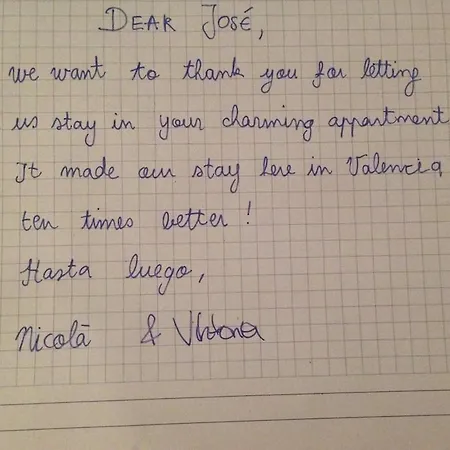 DEAR JOSÉ,
we want to thank you for letting
us stay in your charming appartment
It made our stay here in Valencia
ten times better!
Hasta luego,
Nicolā &